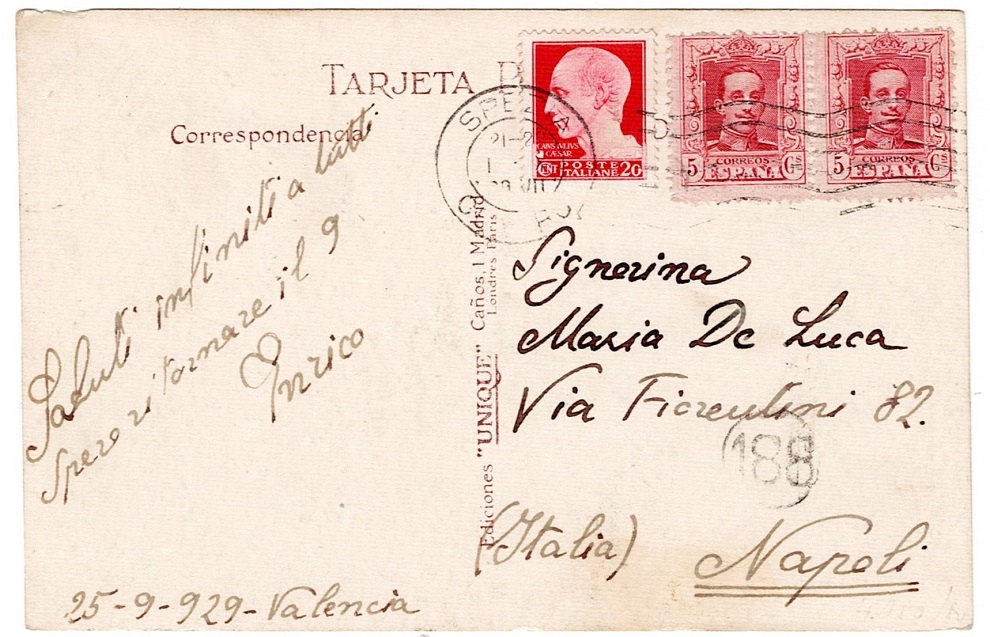 TARJETA P
Correspondencia
Saluti infiniti a tutti
spero ritornare il 9
Enrico
25-9-929-Valencia
Ediciones "UNIQUE" Caños, 1 Madrid
Londres Paris
SPEZIA
CAIVS IVLIVS
CAESAR
CENT POSTE
ITALIANE 20
5 CORREOS Cs
ESPAÑA
5 CORREOS Cs
ESPAÑA
Signorina
Maria De Luca
Via Fiorentini 82.
188
(Italia) Napoli